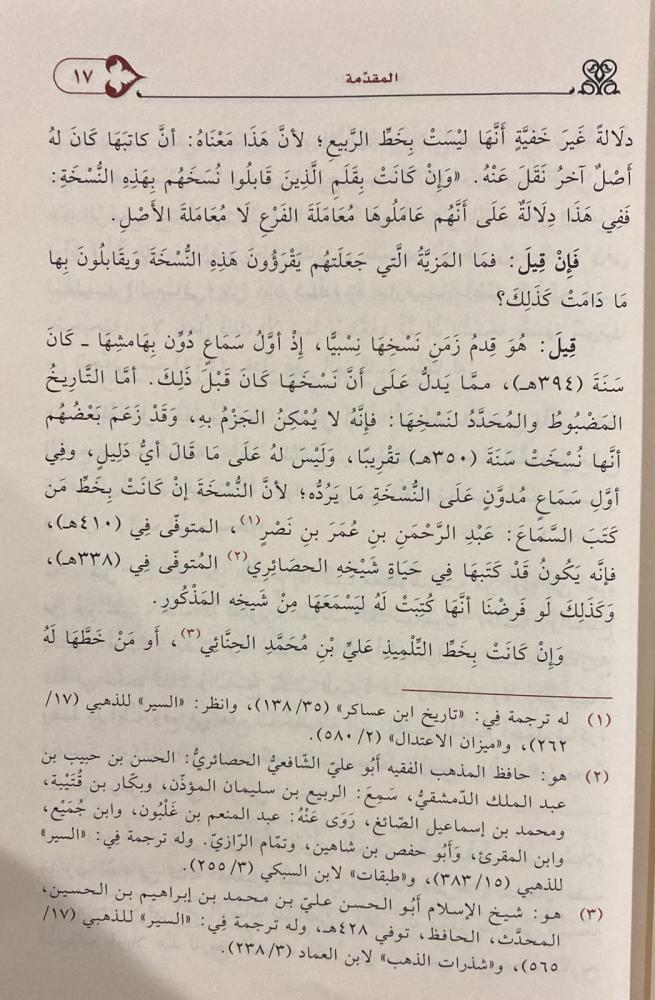 ١٧
المقدّمة
دلَالةً غَيرَ خَفيَّةٍ أَنَّهَا لَيْسَتْ بِخَطِّ الرَّبيعِ؛ لأنَّ هَذَا مَعْنَاهُ: أنَّ كاتبَهَا كَانَ لهُ
أَصْلٌ آخرُ نَقَلَ عَنْهُ. «وَإِنْ كَانَتْ بِقَلَمِ الَّذِينَ قَابلُوا نُسَخَهُم بِهَذِهِ النُّسْخَةِ:
فَفِي هَذَا دِلَالَةٌ عَلَى أَنَّهُم عَامَلُوهَا مُعَامَلَةَ الفَرْعِ لَا مُعَامَلةَ الأَصْلِ.
فَإِنْ قِيلَ: فمَا المَزيَّةُ الَّتي جَعَلَتهُم يَقْرَؤُونَ هَذِهِ النُّسْخَةَ وَيقَابلُونَ بِها
مَا دَامَتْ كَذَلِكَ؟
قِيلَ: هُوَ قِدمُ زَمَنِ نَسْخِهَا نِسْبيًّا، إِذْ أوَّلُ سَمَاعٍ دُوِّن بِهَامشِهَا ـ كَانَ
سَنَةَ (٣٩٤هـ)، ممَّا يَدلُّ عَلَى أَنَّ نَسْخَهَا كَانَ قَبْلَ ذَلِكَ. أمَّا التَّاريخُ
المَضْبُوطُ والمُحَدَّدُ لنَسْخِهَا: فإنَّهُ لا يُمْكِنُ الجَزْمُ بهِ، وَقَدْ زَعَمَ بَعْضُهُم
أنَّها نُسخَتْ سَنَةَ (٣٥٠هـ) تقْرِيبًا، وَلَيْسَ لهُ عَلَى مَا قَالَ أيُّ دَلِيلٍ، وفِي
أوَّلِ سَمَاعٍ مُدوَّنٍ عَلَى النُّسْخَةِ مَا يَرُدُّه؛ لأنَّ النُّسْخَةَ إنْ كَانَتْ بِخَطِّ مَن
كَتَبَ السَّمَاعَ: عَبْدِ الرَّحْمَنِ بنِ عُمَرَ بنِ نَصْرٍ(١)، المتوفَّى فِي (٤١٠هـ)،
فإنَّه يَكُونُ قَدْ كَتَبَهَا فِي حَيَاةِ شَيْخِهِ الحصَائِرِي(٢) المُتوفَّى فِي (٣٣٨هـ)،
وَكَذَلِكَ لَو فَرضْنَا أنَّهَا كُتِبَتْ لَهُ ليَسْمَعَهَا مِنْ شَيخِه المَذْكُورِ.
وَإِنْ كَانَتْ بِخَطِّ التِّلْمِيذِ عَليِّ بْنِ مُحَمَّدٍ الحِنَّائِي(٣)، أَو مَنْ خَطَّهَا لَهُ
(١) له ترجمة فِي: «تاريخ ابن عساكر» (١٣٨/٣٥)، وانظر: «السير» للذهبي (١٧/
٢٦٢)، و«ميزان الاعتدال» (٥٨٠/٢).
(٢) هو: حافظ المذهب الفقيه أَبُو عليّ الشّافعيُّ الحصائريُّ: الحسن بن حبيب بن
عبد الملك الدّمشقيُّ، سَمِعَ: الربيع بن سليمان المؤذّن، وبكّار بن قُتَيْبة،
ومحمد بن إسماعيل الصّائغ، رَوَى عَنْهُ: عبد المنعم بن غَلْبُون، وابن جُمَيْع،
وابن المقرئ، وَأَبُو حفص بن شاهين، وتمّام الرّازيّ. وله ترجمة فِي: «السير»
للذهبي (٣٨٣/١٥)، و«طبقات» لابن السبكي (٢٥٥/٣).
(٣) هو: شيخ الإسلام أبُو الحسن عليّ بن محمد بن إبراهيم بن الحسين،
المحدّث، الحافظ، توفي ٤٢٨هـ، وله ترجمة فِي: «السير» للذهبي (١٧/
٥٦٥)، و«شذرات الذهب» لابن العماد (٢٣٨/٣).